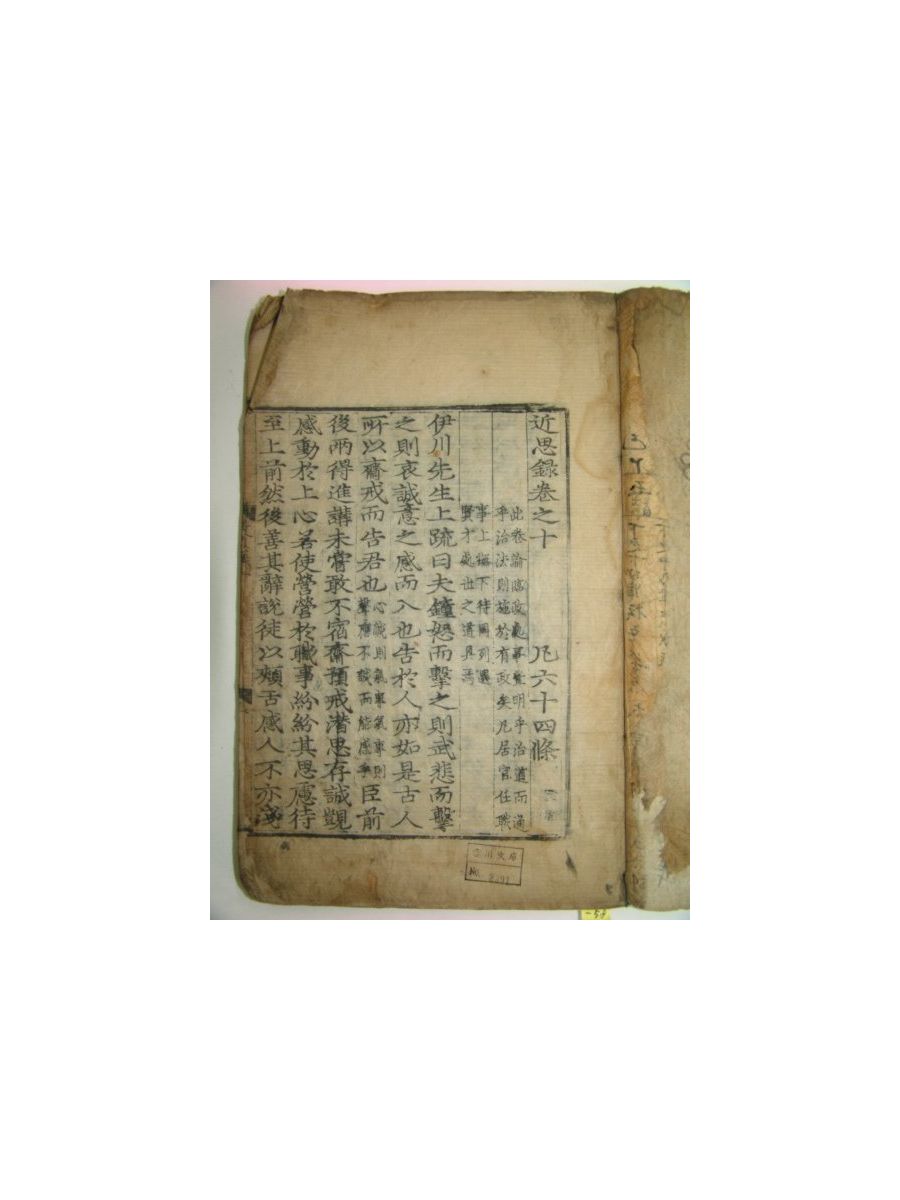 近思錄卷之十 凡六十四條
此卷論臨政處事蓋明乎治道而通
乎治法則施於有政矣凡居官任職
事上撫下待同列選
賢才處世之道具焉
伊川先生上䟽曰夫鐘怒而擊之則武悲而擊
之則哀誠意之感而入也告於人亦如是古人
所以齋戒而告君也心誠則氣專氣專則聲應不誠而能感乎臣前
後兩得進講未嘗敢不宿齋預戒潛思存誠覬
感動於上心若使營營於職事紛紛其思慮待
至上前然後善其辭說徒以頰舌感人不亦淺
川文庫
No.